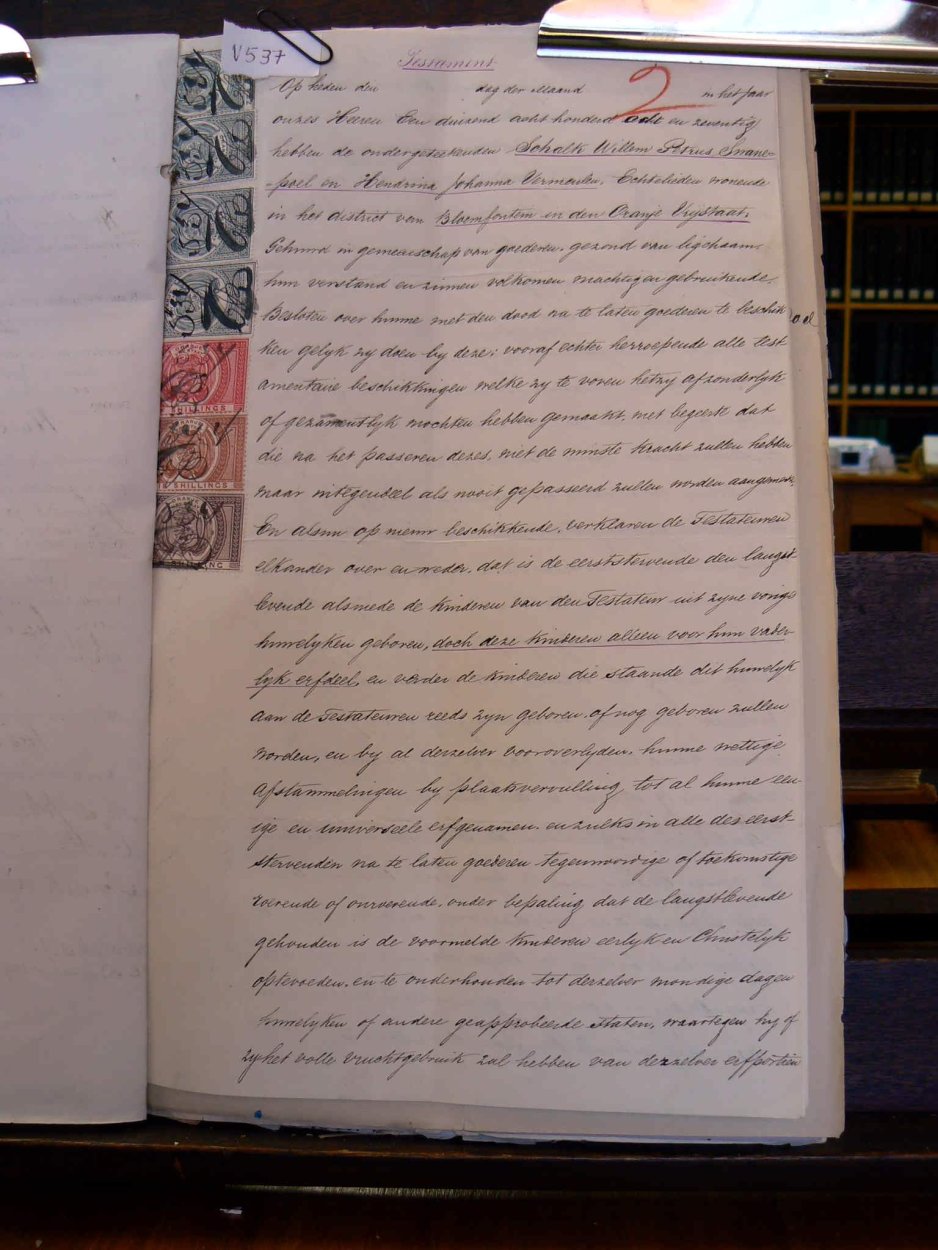 V537
Testament
2
Op heden den dag der Maand in het Jaar
onzes Heeren Een duizend acht honderd acht en zeventig
hebben de ondergeteekenden Schalk Willem Pirus Swane=
=poel en Hendrina Johanna Vermeulen, Echtelieden wonende
in het district van Bloemfontein in den Oranje Vrystaat.
Gehuwd in gemeenschap van goederen, gezond van ligchaam
hun verstand en zinnen volkomen machtig en gebruikende.
Besloten over hunne met den dood na te laten goederen te beschik
ken gelyk zy doen by deze; vooraf echter herroepende alle test
amentaire beschikkingen welke zy te voren hetzy afzonderlyk
of gezamentlyk mochten hebben gemaakt, met begeerte dat
die na het passeren dezes, niet de minste kracht zullen hebben
maar integendeel als nooit gepasseerd zullen worden aangemerkt.
En alsnu op nieuw beschikkende, verklaren de Testateuren
elkander over en weder, dat is de eerststervende den langst
levende alsmede de kinderen van den Testateur uit zyne vorige
huwelyken geboren, doch deze kinderen alleen voor hun vader-
lyk erfdeel, en verder de kinderen die staande dit huwelyk
aan de Testateuren reeds zyn geboren, of nog geboren zullen
worden, en by al derzelver vooroverlyden, hunne wettige
afstammelingen by plaatsvervulling tot al hunne een-
ige en universeele erfgenamen, en zulks in alle des eerst-
stervenden na te laten goederen tegenwoordige of toekomstige
roerende of onroerende, onder bepaling dat de langstlevende
gehouden is de voormelde kinderen eerlyk en Christelyk
optevoeden, en te onderhouden tot derzelver mondige dagen
huwelyken of andere geapprobeerde staten, waartegen hy of
zy het volle vruchtgebruik zal hebben van derzelver erfportien
SHILLINGS
SHILLINGS
SHILLING